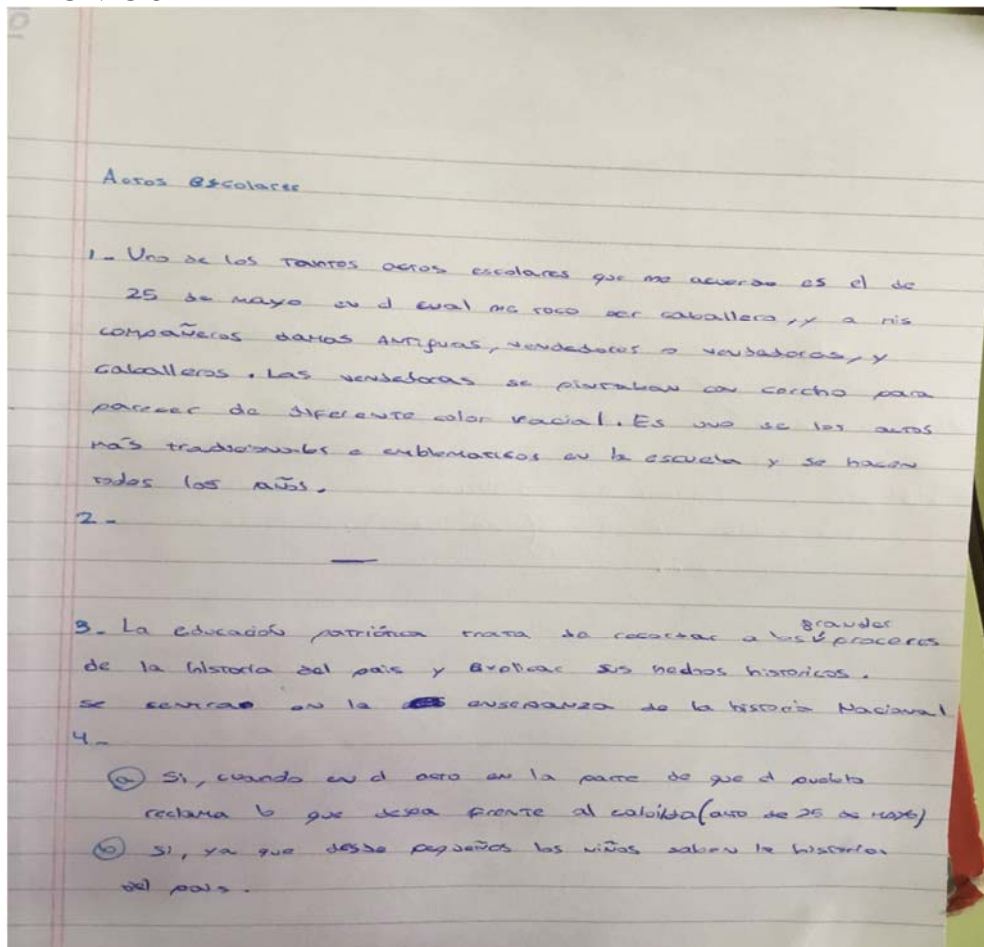 Actos escolares
1- Uno de los tantos actos escolares que me acuerdo es el de
25 de mayo en el cual me toco ser caballero, y a mis
compañeros damas Antiguas, vendedores o vendedoras, y
caballeros. Las vendedoras se pintaban con corcho para
parecer de diferente color racial. Es uno de los actos
más tradicionales e emblematicos en la escuela y se hacen
todos los años.
2-
—
3- La educación patriótica trata de recordar a los grandes proceres
de la historia del pais y explicar sus hechos historicos.
se centra en la enseñanza de la historia Nacional
4-
a) Si, cuando en el acto en la parte de que el pueblo
reclama lo que desea frente al cabildo (acto de 25 de mayo)
b) Si, ya que desde pequeños los niños saben la historia
del pais.